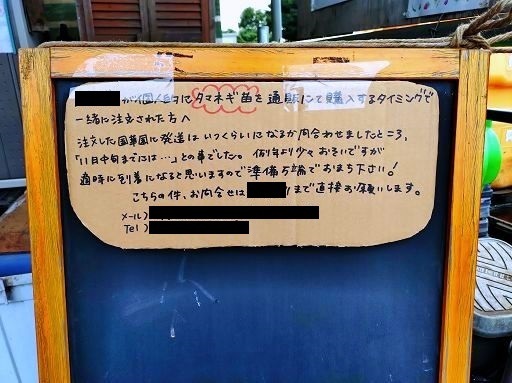 が個人的にタマネギ苗を通販にて購入するタイミングで
一緒に注文された方へ
注文した国華園に発送はいつくらいになるか問合わせましたところ、
「11日中旬までには…」との事でした。例年より少々おそいですが
適時に到着になると思いますので準備万端でおまち下さい!
こちらの件、お問合せは まで直接お願いします。
メール)
Tel)